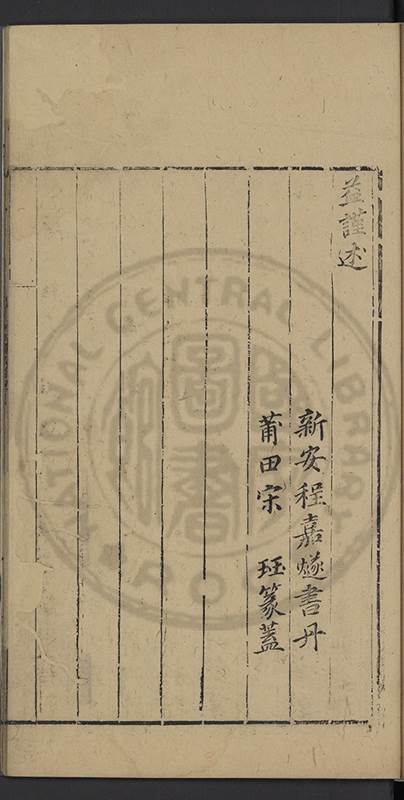 益謹述
新安程嘉燧書丹
莆田宋 珏篆蓋
NATIONAL CENTRAL LIBRARY
圖書